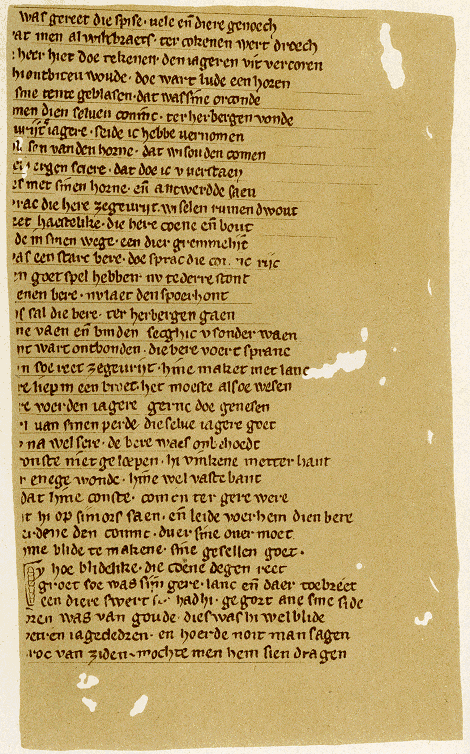 was gereet die spise · vele en̄ diere genoech
at men al wiltbraets · ter cokenen wert droech
heer hiet doe tekenen · den iageren vit vercoren
hi ontbiten woude · doe wart lude een horen
sine tente geblasen · dat was sine orconde
men dien seluen coninc · ter herbergen vonde
iagere · seide ic hebbe vernomen
van den horne · dat wi souden comen
ergen sciere · dat doe ic v verstaen
met sinen horne · en̄ antwerdde saen
rac die here zegeurijt · wi selen rumen dwout
haestelike · die here coene en̄ bout
de in sinen wege · een dier gremmelijc
as een starc bere · doe sprac die rijc
n goet spel hebben · nv te derre stont
enen bere · nv laet den spoerhont
is sal die bere · ter herbergen gaen
ne vaen en̄ binden secghic v sonder waen
nt wart ontbonden · die bere voert spranc
n soe reet zegeurijt · hine maket met lanc
re liep in een broec · het moeste alsoe wesen
re voerden iagere gerne doe genesen
van sinen perde die selue iagere goet
na wel sere · de bere waes onbehoedt
conste niet geloepen · hi vinkene metter hant
r enege wonde · hine wel vaste bant
dat hine conste · comen ter gere were
t hi op sijn ors saen · en̄ leide voer hem dien bere
dene den coninc · duer sine ouermoet
me blide te makene · sine gesellen goet ·
y hoe blidelike · die coene degen reet
groet soe was sijn gere · lanc en̄ daer toe breet
een diere swert hadhi · gegort ane sine side
ren was van goude · dies was hi wel blide
en iagecledren · en hoerde noit man sagen
roc van ziden · mochte men hem sien dragen